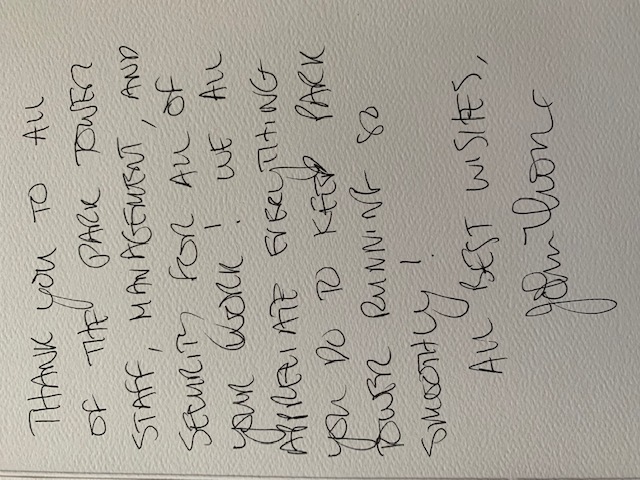 THANK YOU TO ALL
OF THE PARK TOWER
STAFF, MANAGEMENT, AND
SECURITY FOR ALL OF
YOUR WORK! WE ALL
APPRECIATE EVERYTHING
YOU DO TO KEEP PARK
TOWER RUNNING SO
SMOOTHLY!
ALL BEST WISHES,